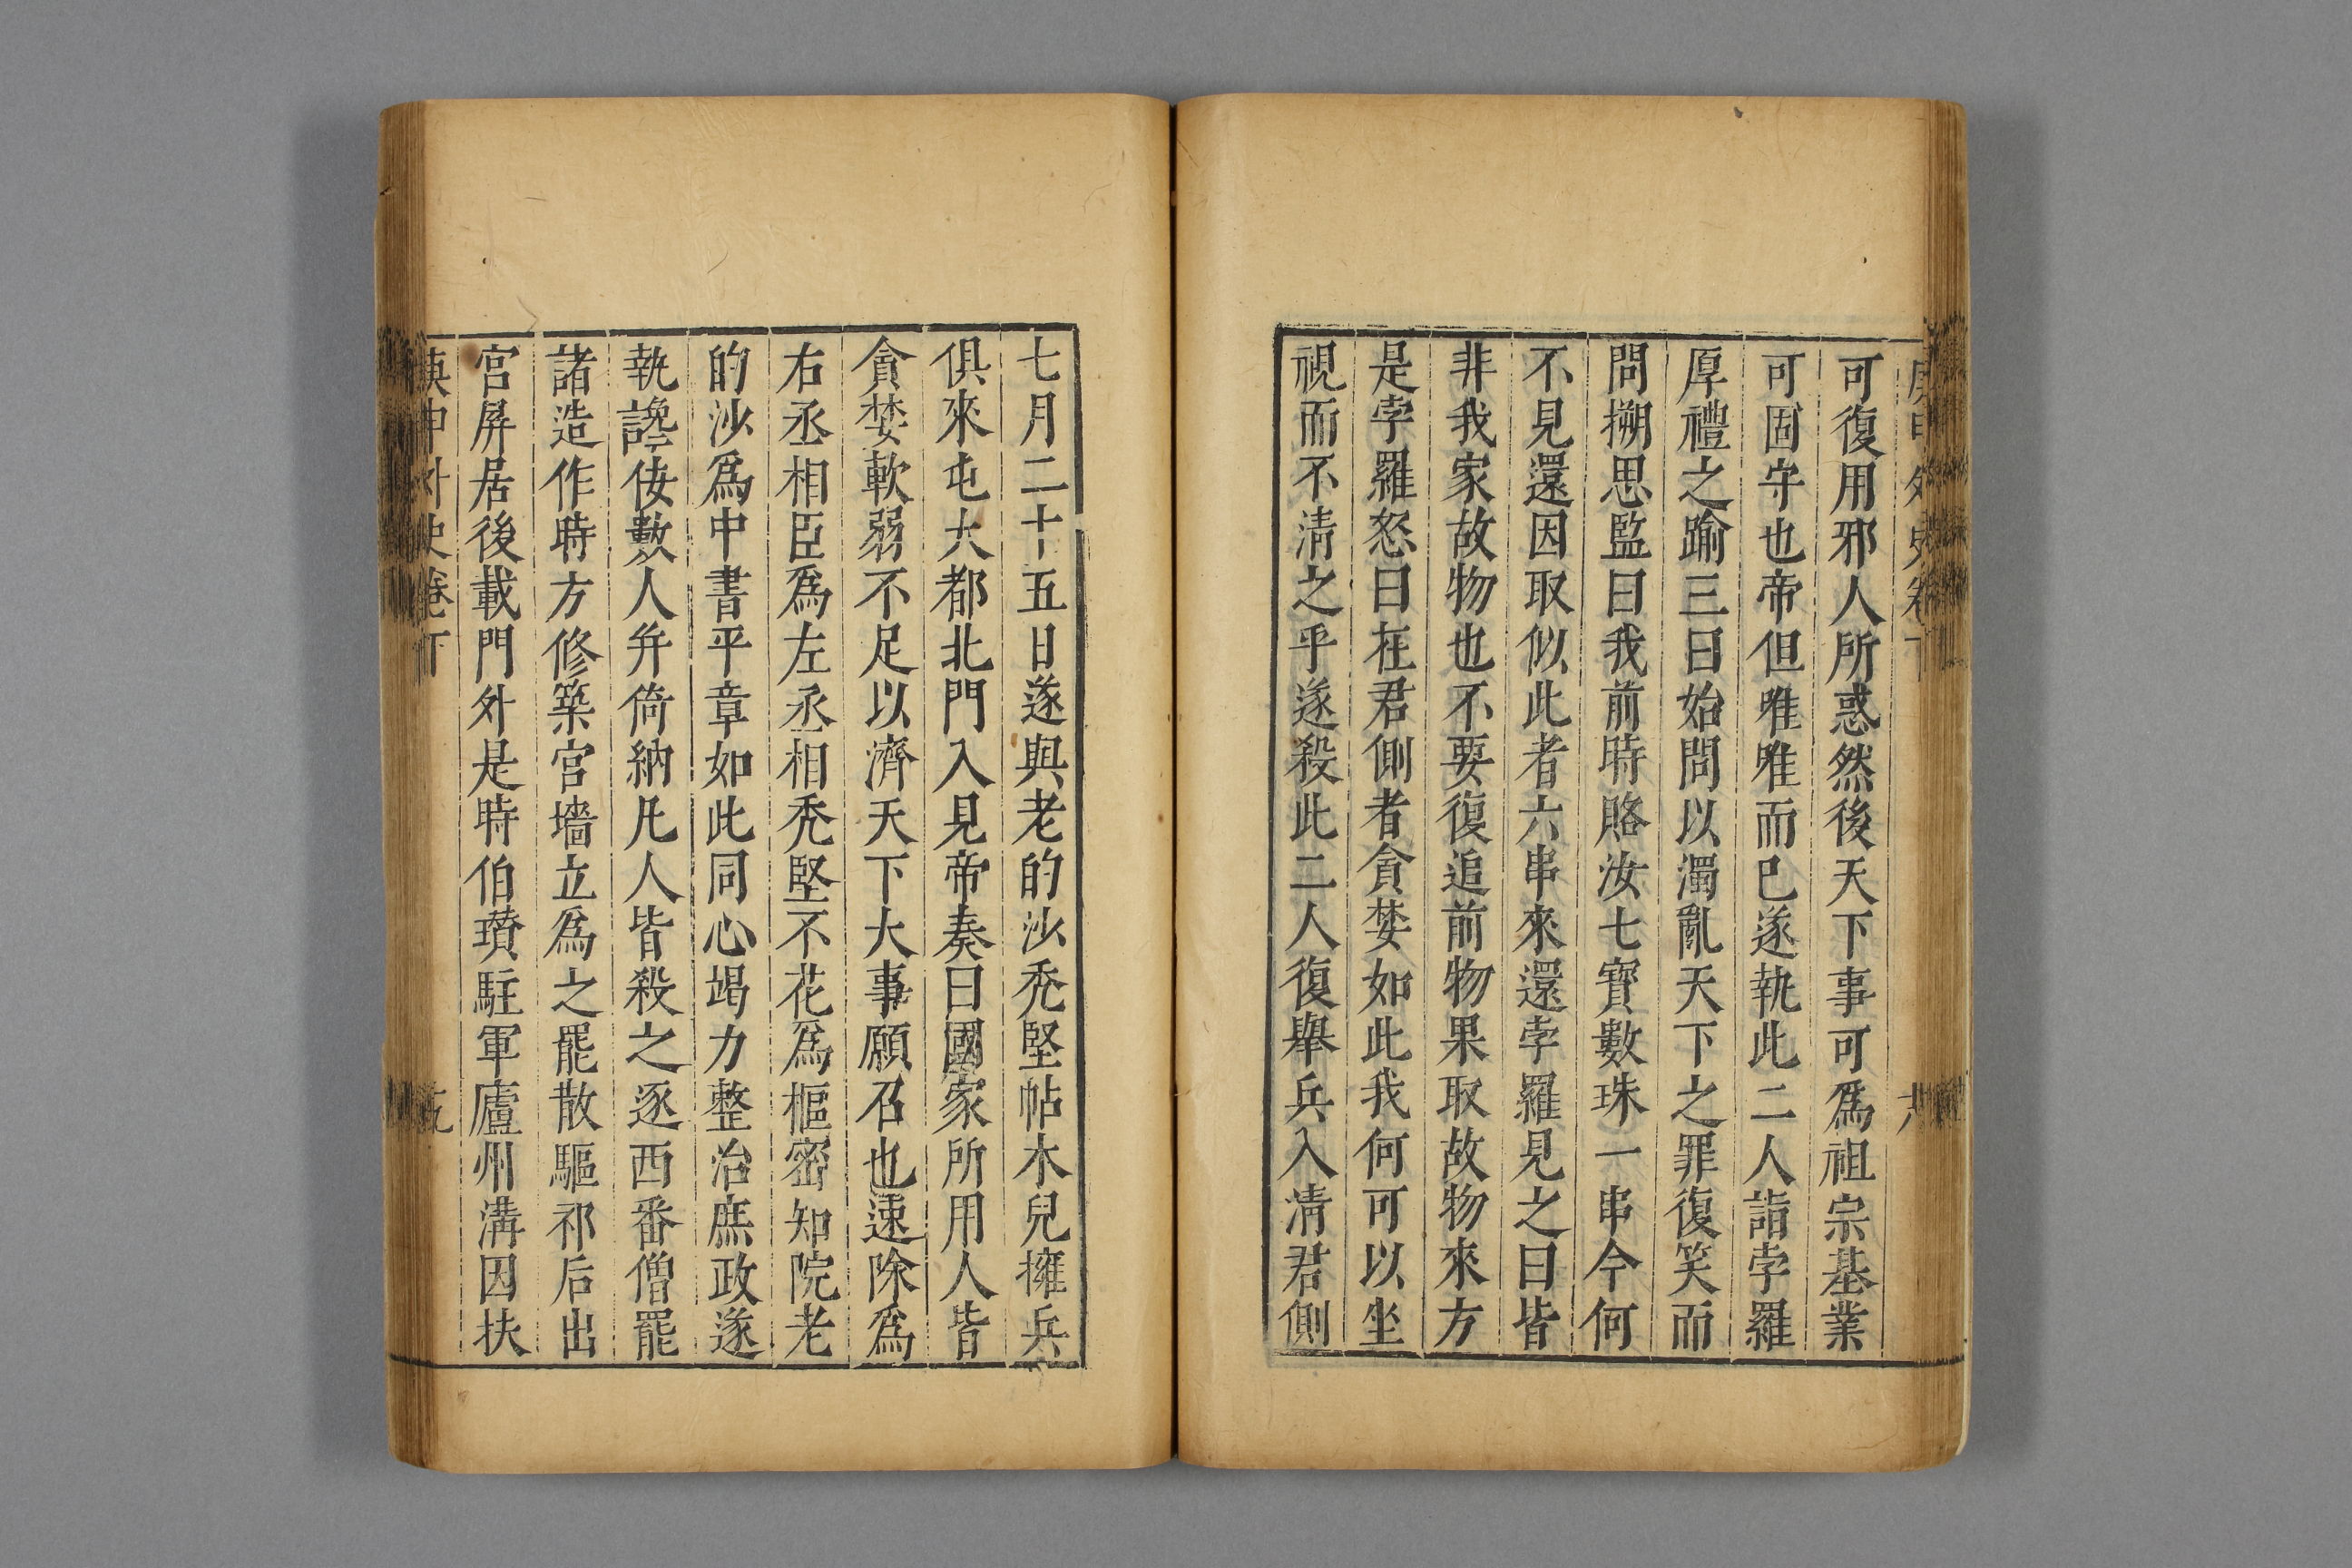 可復用邪人所惑然後天下事可爲祖宗基業
可固守也帝但唯唯而已遂執此二人詣孛羅
厚禮之踰三日始問以濁亂天下之罪復笑而
問搠思監曰我前時賂汝七寳數珠一串今何
不見還因取似此者六串來還孛羅見之曰皆
非我家故物也不要復追前物果取故物來方
是孛羅怒曰在君側者貪婪如此我何可以坐
視而不清之乎遂殺此二人復舉兵入淸君側
七月二十五日遂與老的沙禿堅帖木兒擁兵
俱來屯大都北門入見帝奏曰國家所用人皆
貪婪軟弱不足以濟天下大事願召也速除爲
右丞相臣爲左丞相禿堅不花爲樞密知院老
的沙爲中書平章如此同心竭力整治庶政遂
執讒佞數人并倚納凡人皆殺之逐西番僧罷
諸造作時方修築宮墻立爲之罷散驅祁后出
宮屏居後載門外是時伯瓚駐軍廬州溝因扶
庚申外史卷下